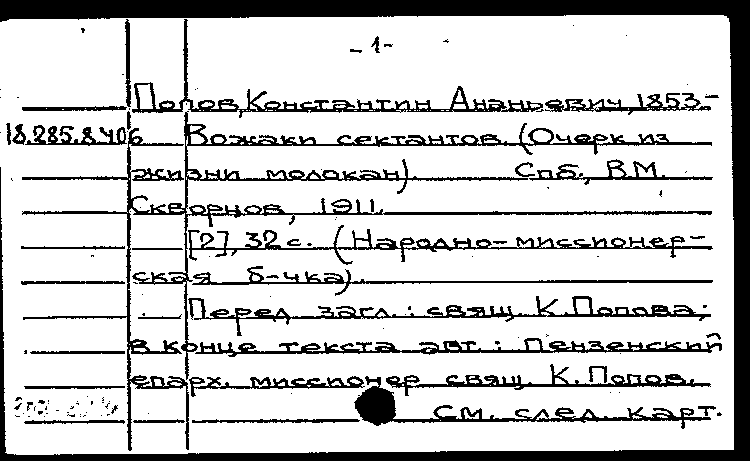 - 1 -
Попов, Константин Ананьевич, 1853-
18.285.8.406 Вожаки сектантов. (Очерк из
жизни молокан). Спб., В.М.
Скворцов, 1911.
[2], 32 с. (Народно-миссионер-
ская б-чка).
Перед загл.: свящ. К. Попова;
в конце текста авт.: Пензенский
епарх. миссионер свящ. К. Попов.
См. след. карт.